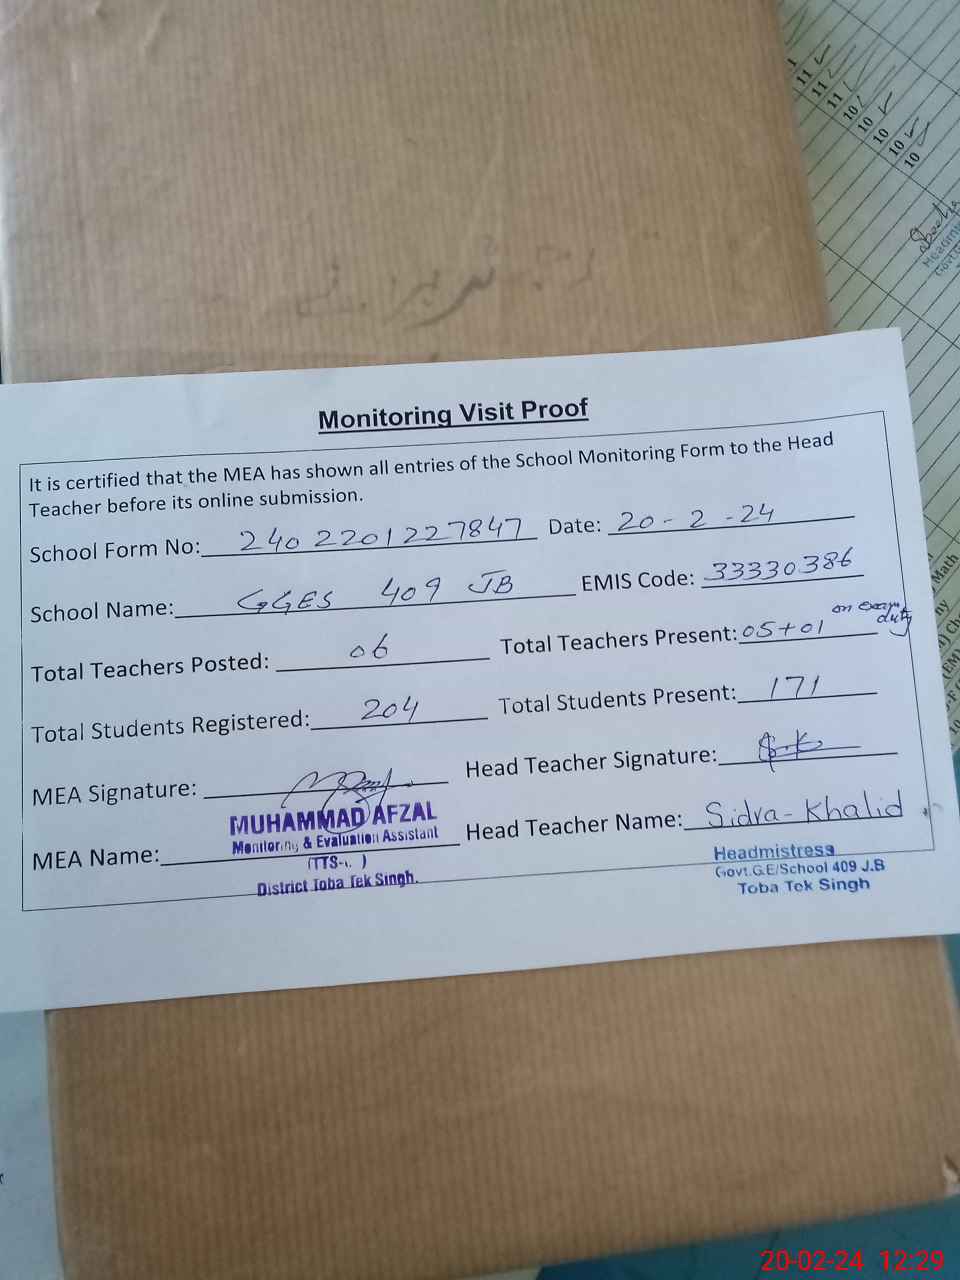 11
11
11
10
10
10
10
10
Monitoring Visit Proof
It is certified that the MEA has shown all entries of the School Monitoring Form to the Head
Teacher before its online submission.
School Form No: 2402201227847 Date: 20-2-24
School Name: GGES 409 JB EMIS Code: 33330386
Total Teachers Posted: 06 Total Teachers Present: 05+01 on exam duty
Total Students Registered: 204 Total Students Present: 171
MEA Signature: Head Teacher Signature:
MUHAMMAD AFZAL
MEA Name: Monitoring & Evaluation Assistant Head Teacher Name: Sidra-Khalid
District Toba Tek Singh.
Headmistress
Govt.G.E/School 409 J.B
Toba Tek Singh
Math
20-02-24 12:29